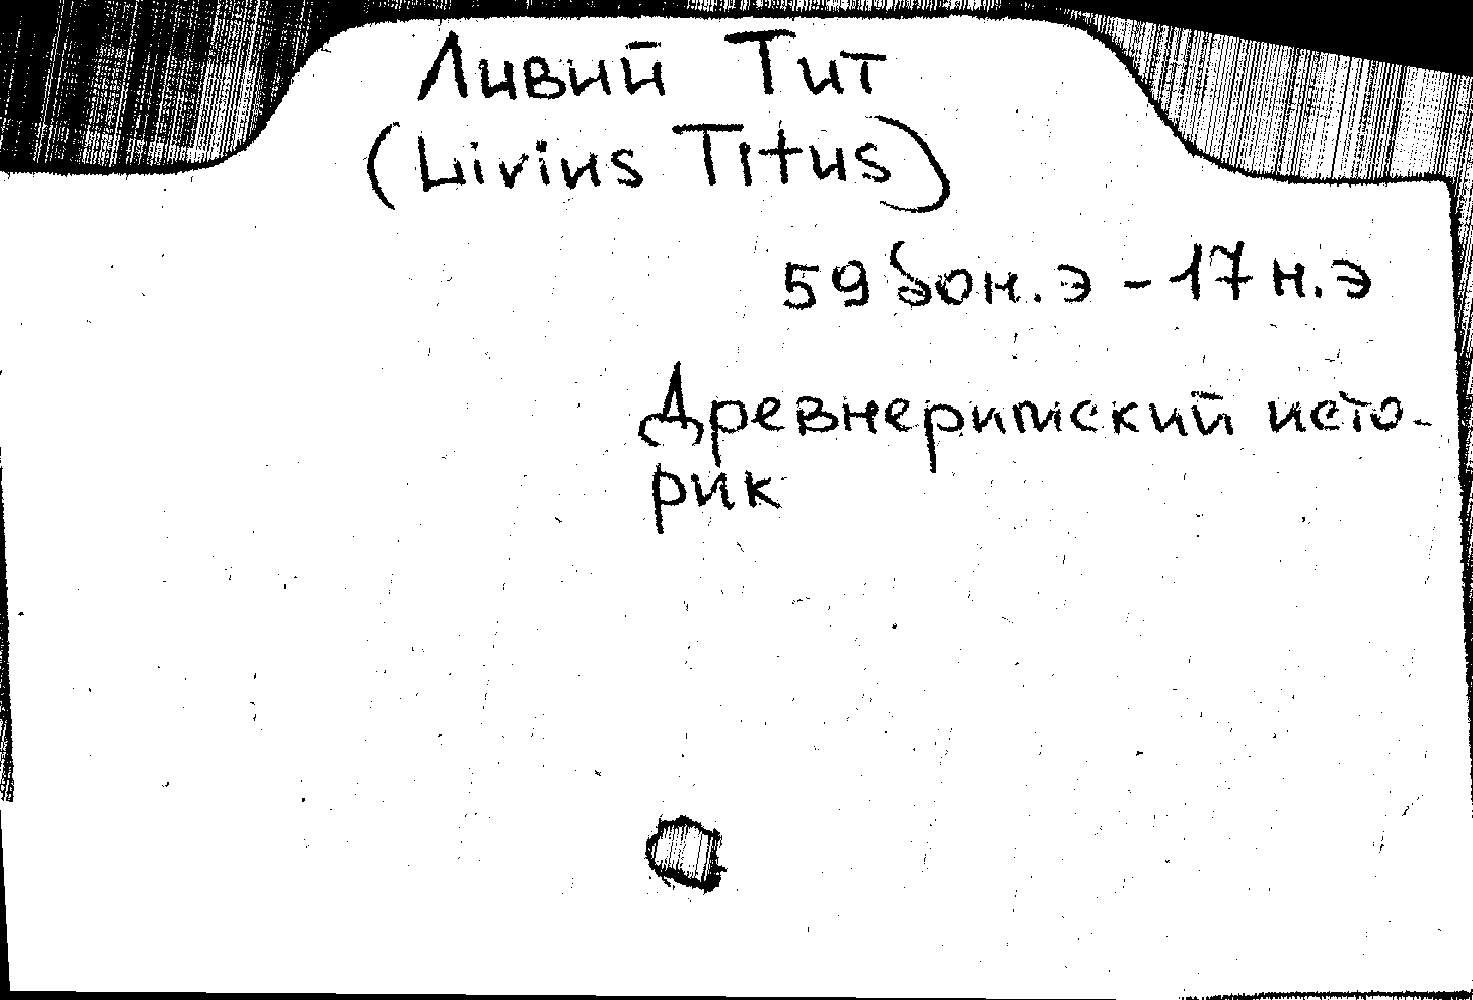 Ливий Тит
(Livius Titus)
59 до н.э - 17 н.э
Древнеримский исто-
рик